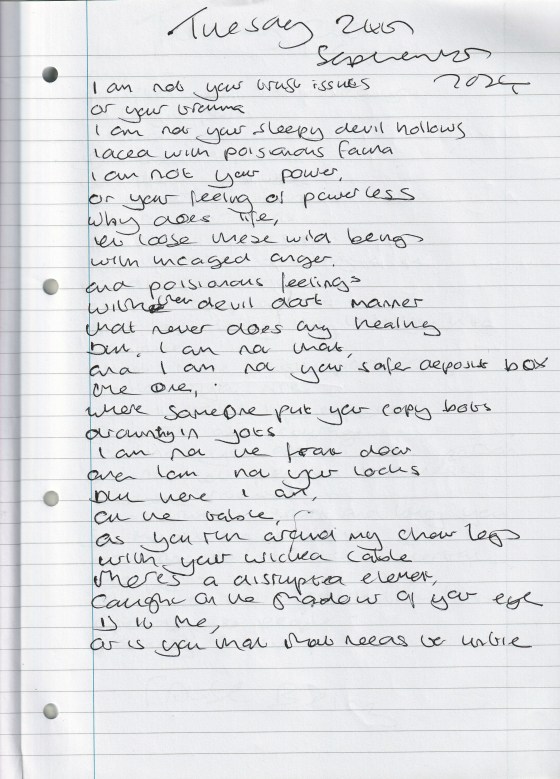 Tuesday 24th
September
2024
I am not your trust issues
or your trauma
I am not your sleepy devil hollows
laced with poisionous fauna
I am not your power,
or your feeling of powerless
why does life,
let loose these wild beings
with incaged anger,
and poisionous feelings
with their devil dart manner
that never does any healing
but, I am not that,
and I am not your safe deposit box
the one,
where someone put your copy bots
drowning in jots
I am not the front door
and I am not your locks
but here I am,
on the table,
as you run around my chair legs
with your wicked cable
there's a disrupted element,
caught in the shadow of your eye
is it me,
or is you that that needs to